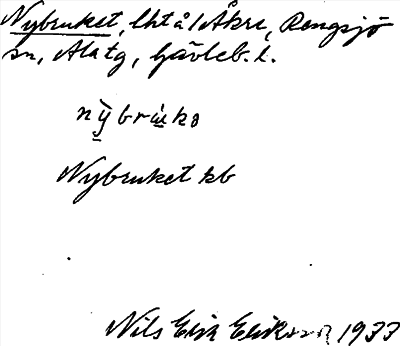 Nybruket, lht å/Åkre, Rengsjö
sn, Ala tg, Gävleb. l.
nỳbrὼkə
Nybruket kb
Nils Erik Erikson 1933